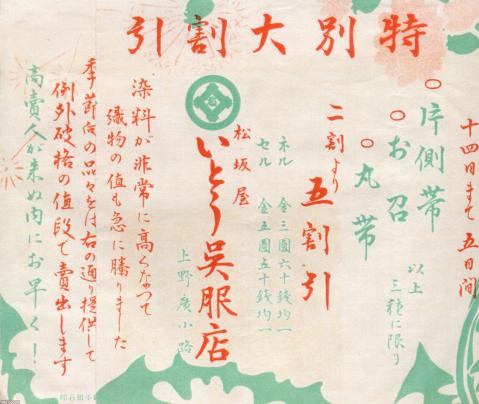 特別大割引
十四日まで 五日間
○片側帯
○お召
○丸帯
以上
三種に限り
二割より 五割引
ネル 金三圓六十銭均一
セル 金五圓五十銭均一
松坂屋
いとう呉服店
上野廣小路
染料が非常に高くなつて
織物の値も急に騰りました
季節向の品々をば右の通り提供して
例外破格の値段で賣出します
商賣人が来ぬ内にお早く!